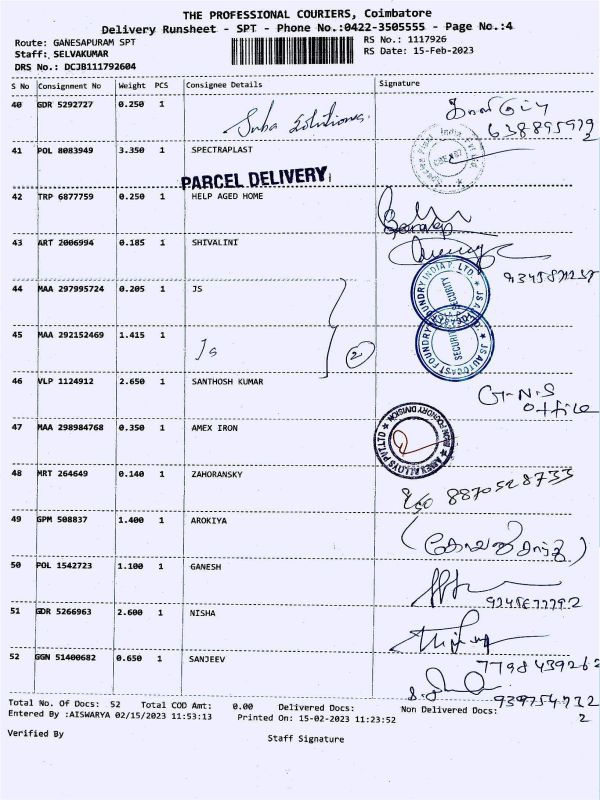 THE PROFESSIONAL COURIERS, Coimbatore
Delivery Runsheet - SPT - Phone No.:0422-3505555 - Page No.:4
Route: GANESAPURAM SPT RS No.: 1117926
Staff: SELVAKUMAR RS Date: 15-Feb-2023
DRS No.: DCJB111792604
S No Consignment No Weight PCS Consignee Details Signature
40 GDR 5292727 0.250 1 Suba Solutions.
41 POL 8083949 3.350 1 SPECTRAPLAST
PARCEL DELIVERY
42 TRP 6877759 0.250 1 HELP AGED HOME
43 ART 2006994 0.185 1 SHIVALINI
44 MAA 297995724 0.205 1 JS
45 MAA 292152469 1.415 1 Js 2
46 VLP 1124912 2.650 1 SANTHOSH KUMAR G.N.S
office
47 MAA 298984768 0.350 1 AMEX IRON
48 MRT 264649 0.140 1 ZAHORANSKY 8870528733
49 GPM 508837 1.400 1 AROKIYA
50 POL 1542723 1.100 1 GANESH
51 GDR 5266963 2.600 1 NISHA
7798439262
52 GGN 51400682 0.650 1 SANJEEV
Total No. Of Docs: 52 Total COD Amt: 0.00 Delivered Docs: Non Delivered Docs:
Entered By :AISWARYA 02/15/2023 11:53:13 Printed On: 15-02-2023 11:23:52
Verified By Staff Signature